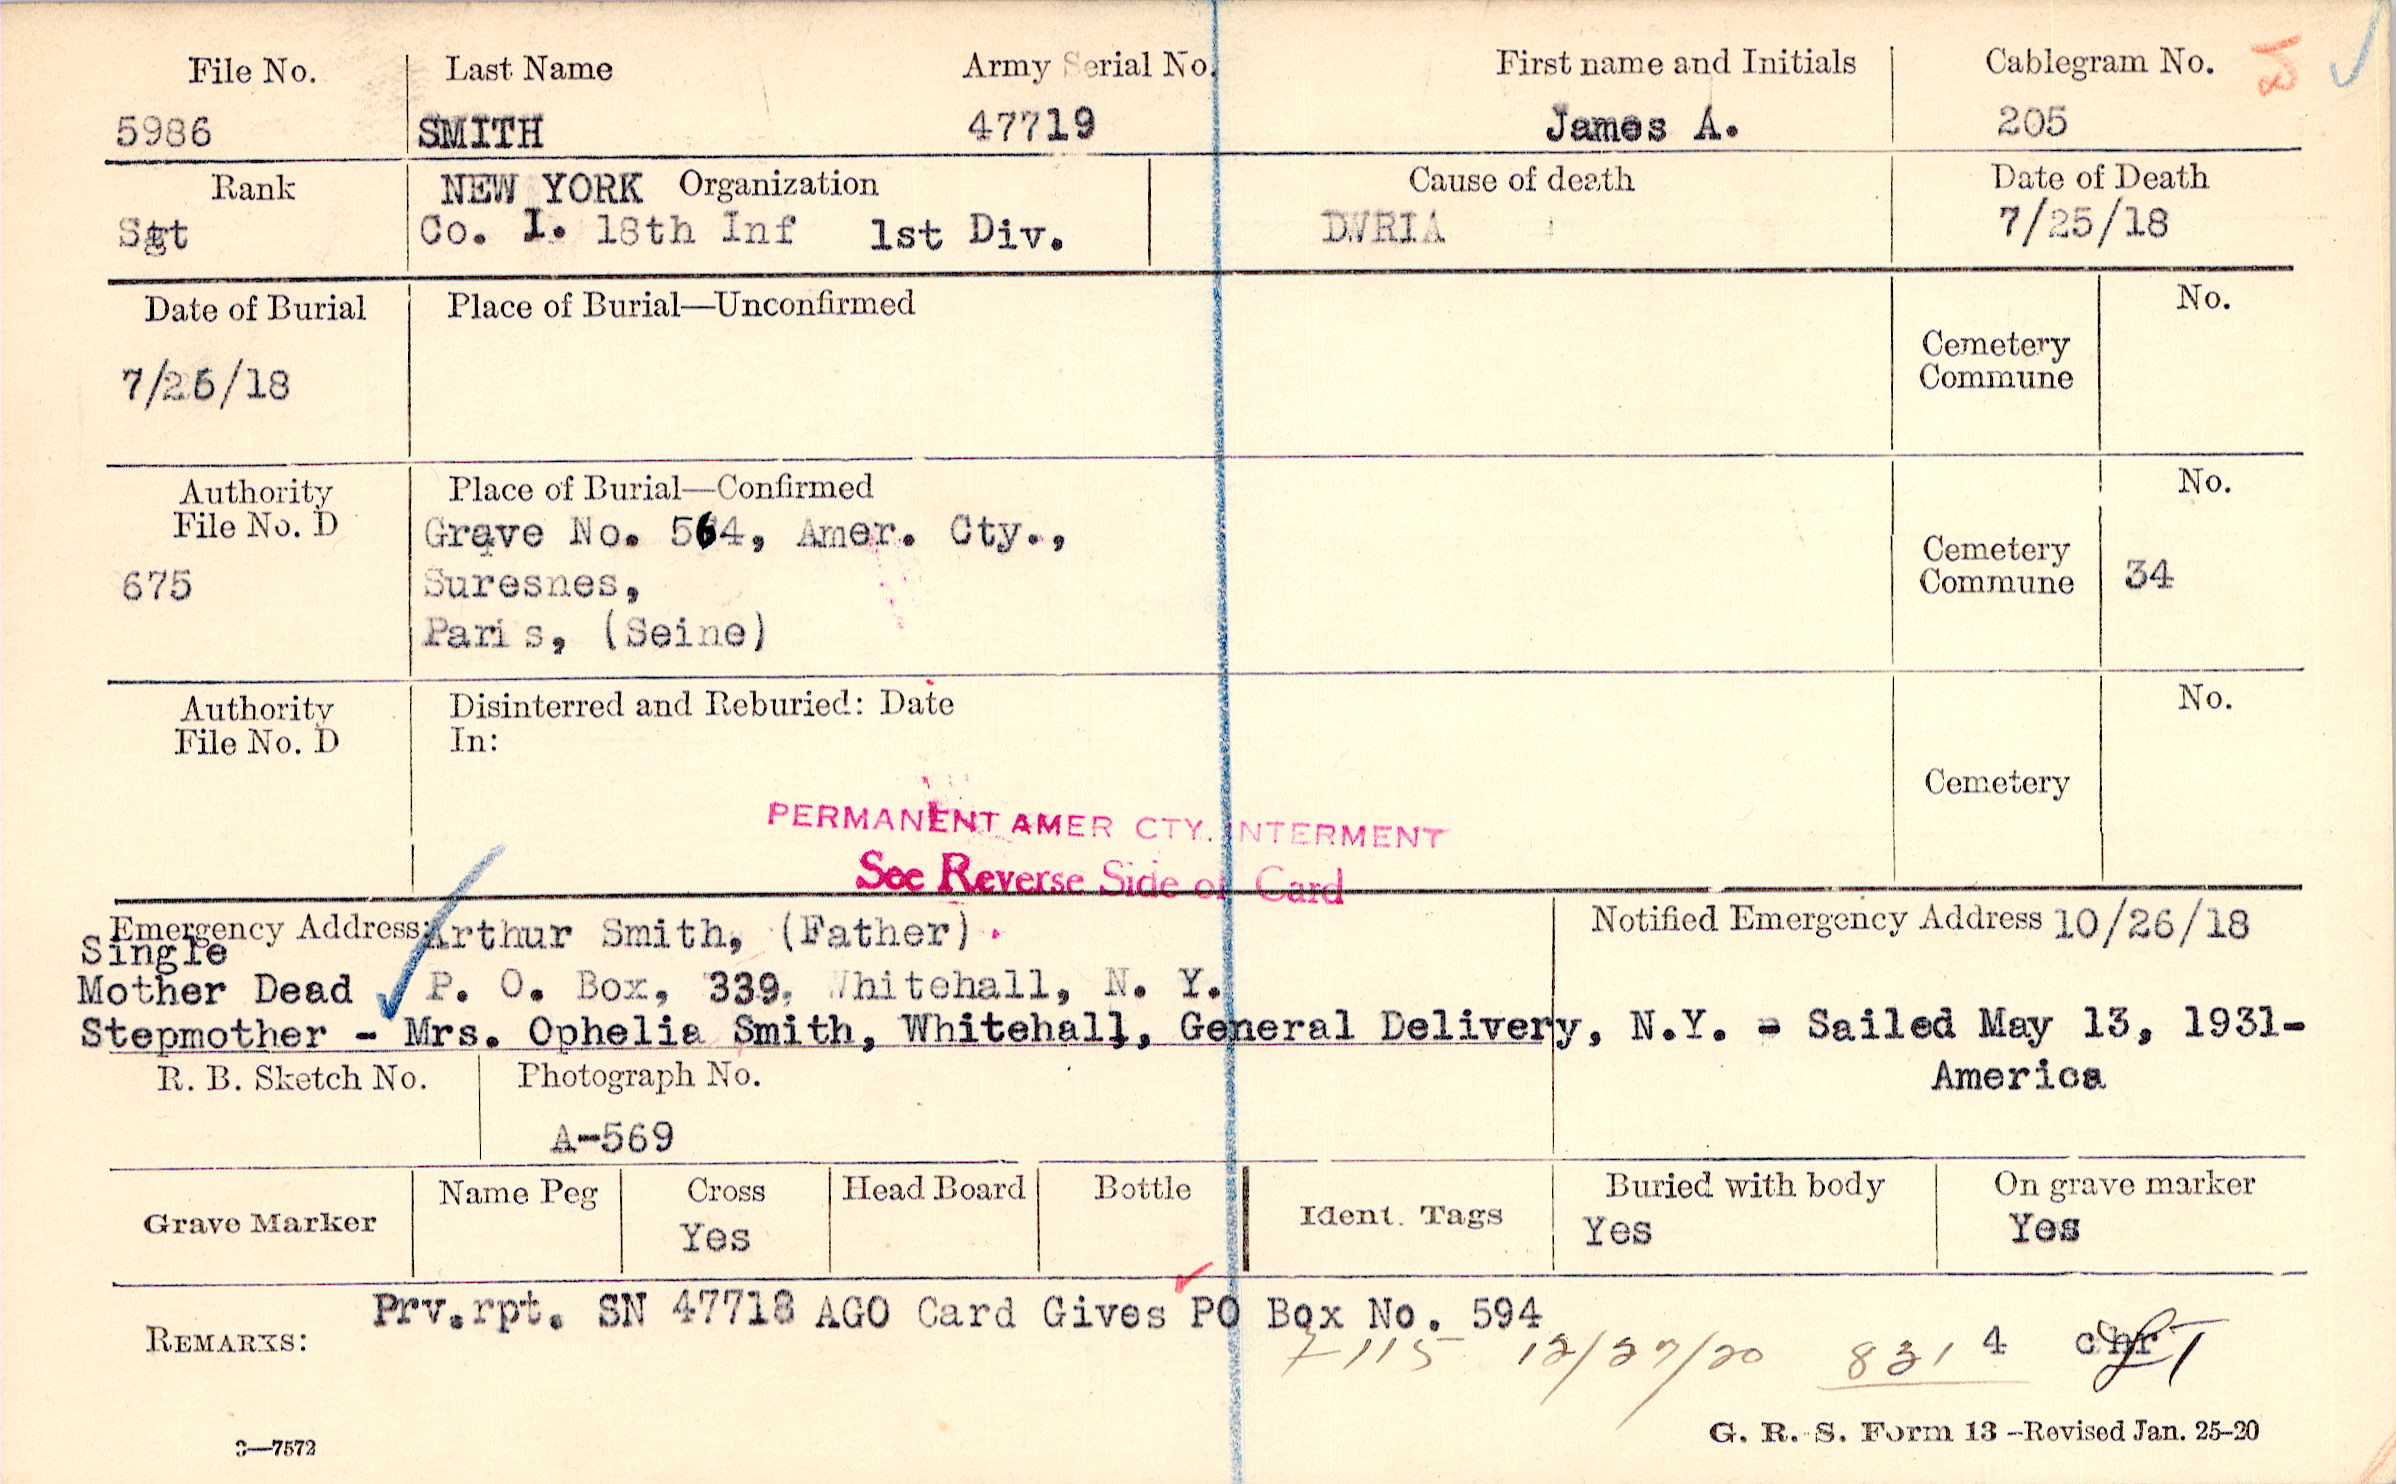 File No. Last Name Army Serial No. First name and Initials Cablegram No.
5986 SMITH 47719 James A. 205
Rank NEW YORK Organization Cause of death Date of Death
Sgt Co. I. 18th Inf 1st Div. DWRIA 7/25/18
Date of Burial Place of Burial—Unconfirmed No.
7/26/18 Cemetery
Commune
Authority Place of Burial—Confirmed No.
File No. D Grave No. 564, Amer. Cty.,
675 Suresnes, Cemetery
Commune 34
Paris, (Seine)
Authority Disinterred and Reburied: Date No.
File No. D In:
Cemetery
PERMANENT AMER CTY. INTERMENT
See Reverse Side of Card
Emergency Address: Arthur Smith, (Father) Notified Emergency Address 10/26/18
Single
Mother Dead P. O. Box, 339, Whitehall, N. Y.
Stepmother - Mrs. Ophelia Smith, Whitehall, General Delivery, N.Y. - Sailed May 13, 1931-
America
R. B. Sketch No. Photograph No.
A-569
Grave Marker Name Peg Cross Head Board Bottle Ident. Tags Buried with body On grave marker
Yes Yes Yes
Prv.rpt. SN 47718 AGO Card Gives PO Box No. 594
REMARKS: 7115 12/27/20 831 4 chr
3—7572 G. R. S. Form 13 —Revised Jan. 25-20